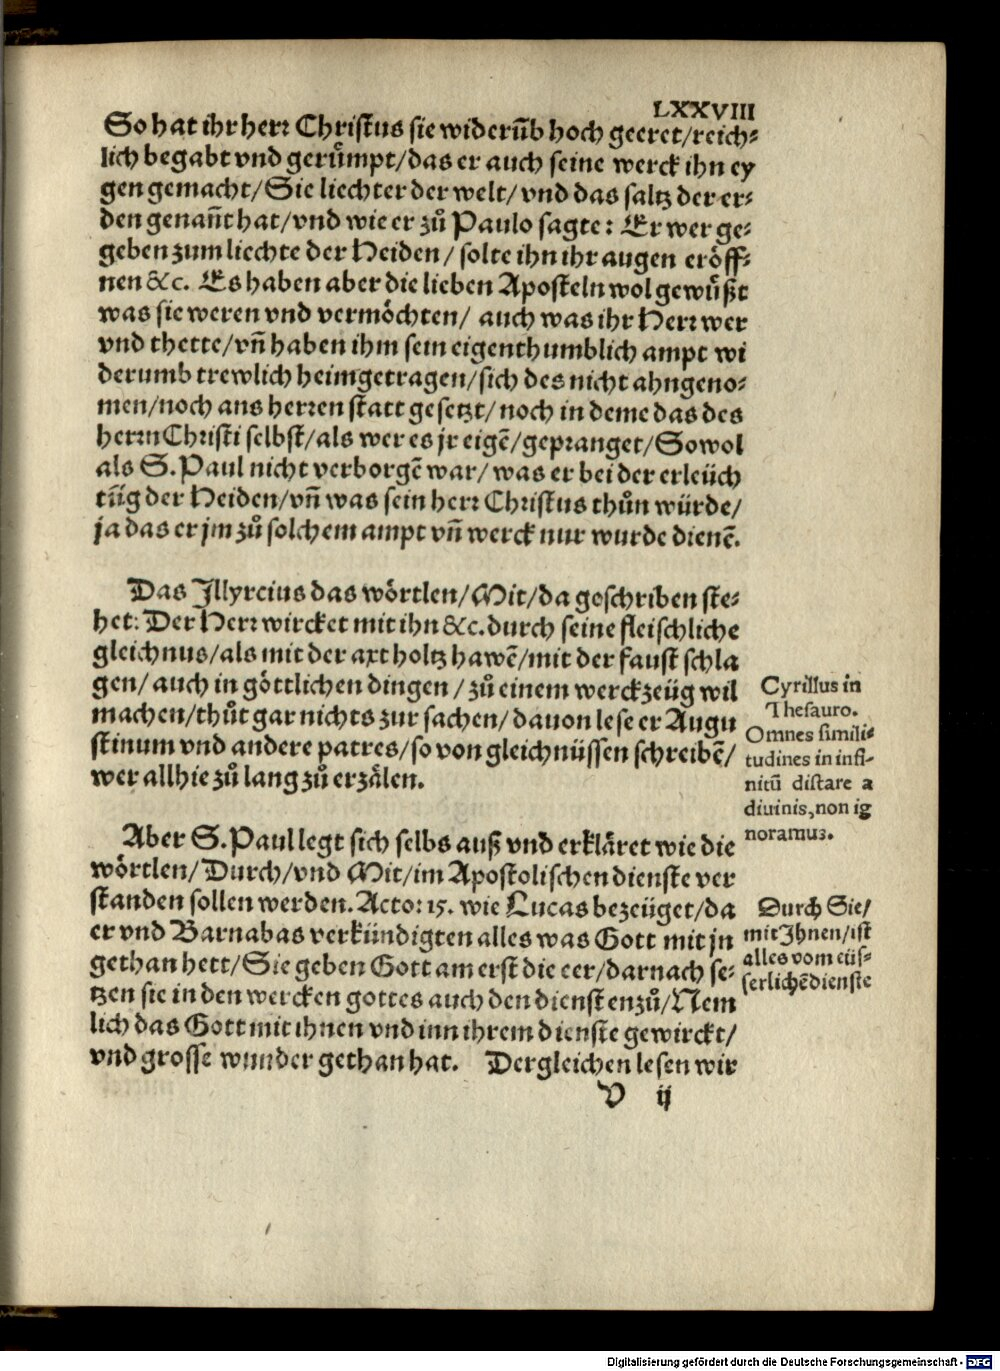 LXXVIII
So hat ihr herr Christus sie widerūb hoch geeret/reich⸗
lich begabt vnd gerůmpt/das er auch seine werck ihn ey
gen gemacht/Sie liechter der welt/vnd das saltz der er⸗
den genañt hat/vnd wie er zů Paulo sagte: Er wer ge⸗
geben zum liechte der Heiden/ solte ihn ihr augen eröff⸗
nen &c. Es haben aber die lieben Aposteln wol gewůßt
was sie weren vnd vermöchten/ auch was ihr Herr wer
vnd thette/vñ haben ihm sein eigenthumblich ampt wi
derumb trewlich heimgetragen/sich des nicht ahngeno⸗
men/noch ans herren statt gesetzt/noch in deme das des
herrn Christi selbst/als wer es jr eigē/gepranget/Sowol
als S. Paul nicht verborgē war/ was er bei der erleüch
tūg der Heiden/vñ was sein herr Christus thůn würde/
ja das er jm zů solchem ampt vñ werck nur wurde dienē.
Das Jllyrcius das wörtlen/Mit/da geschriben ste⸗
het: Der Herr wircket mit ihn &c. durch seine fleischliche
gleichnus/als mit der axt holtz hawē/mit der faust schla
gen/ auch in göttlichen dingen/ zů einem werckzeüg wil
machen/thůt gar nichts zur sachen/dauon lese er Augu
stinum vnd andere patres/so von gleichnüssen schreibē/
wer allhie zů lang zů erzälen.
Cyrillus in
Thesauro.
Omnes simili⸗
tudines in infi-
nitū distare a
diuinis,non ig
noramus.
Aber S. Paul legt sich selbs auß vnd erkläret wie die
wörtlen/Durch/vnd Mit/im Apostolischen dienste ver
standen sollen werden. Acto: 15. wie Lucas bezeüget/da
er vnd Barnabas verkündigten alles was Gott mit jn
gethan hett/Sie geben Gott am erst die eer/darnach se⸗
tzen sie in den wercken gottes auch den dienst enzů/Nem
lich das Gott mit ihnen vnd inn ihrem dienste gewirckt/
vnd grosse wunder gethan hat. Dergleichen lesen wir
Durch Sie/
mit Jhnen/ist
alles vom eüs⸗
serlichē dienste
V ij
Digitalisierung gefördert durch die Deutsche Forschungsgemeinschaft - DFG